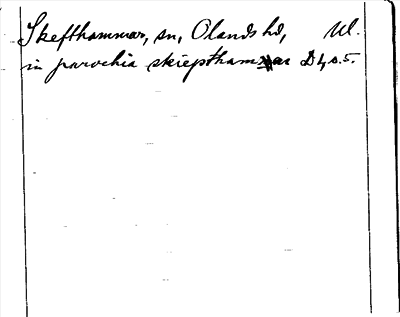 Skefthammar, sn, Olands hd, Ul.
in parochia skiepthammar D 4, s. 5.